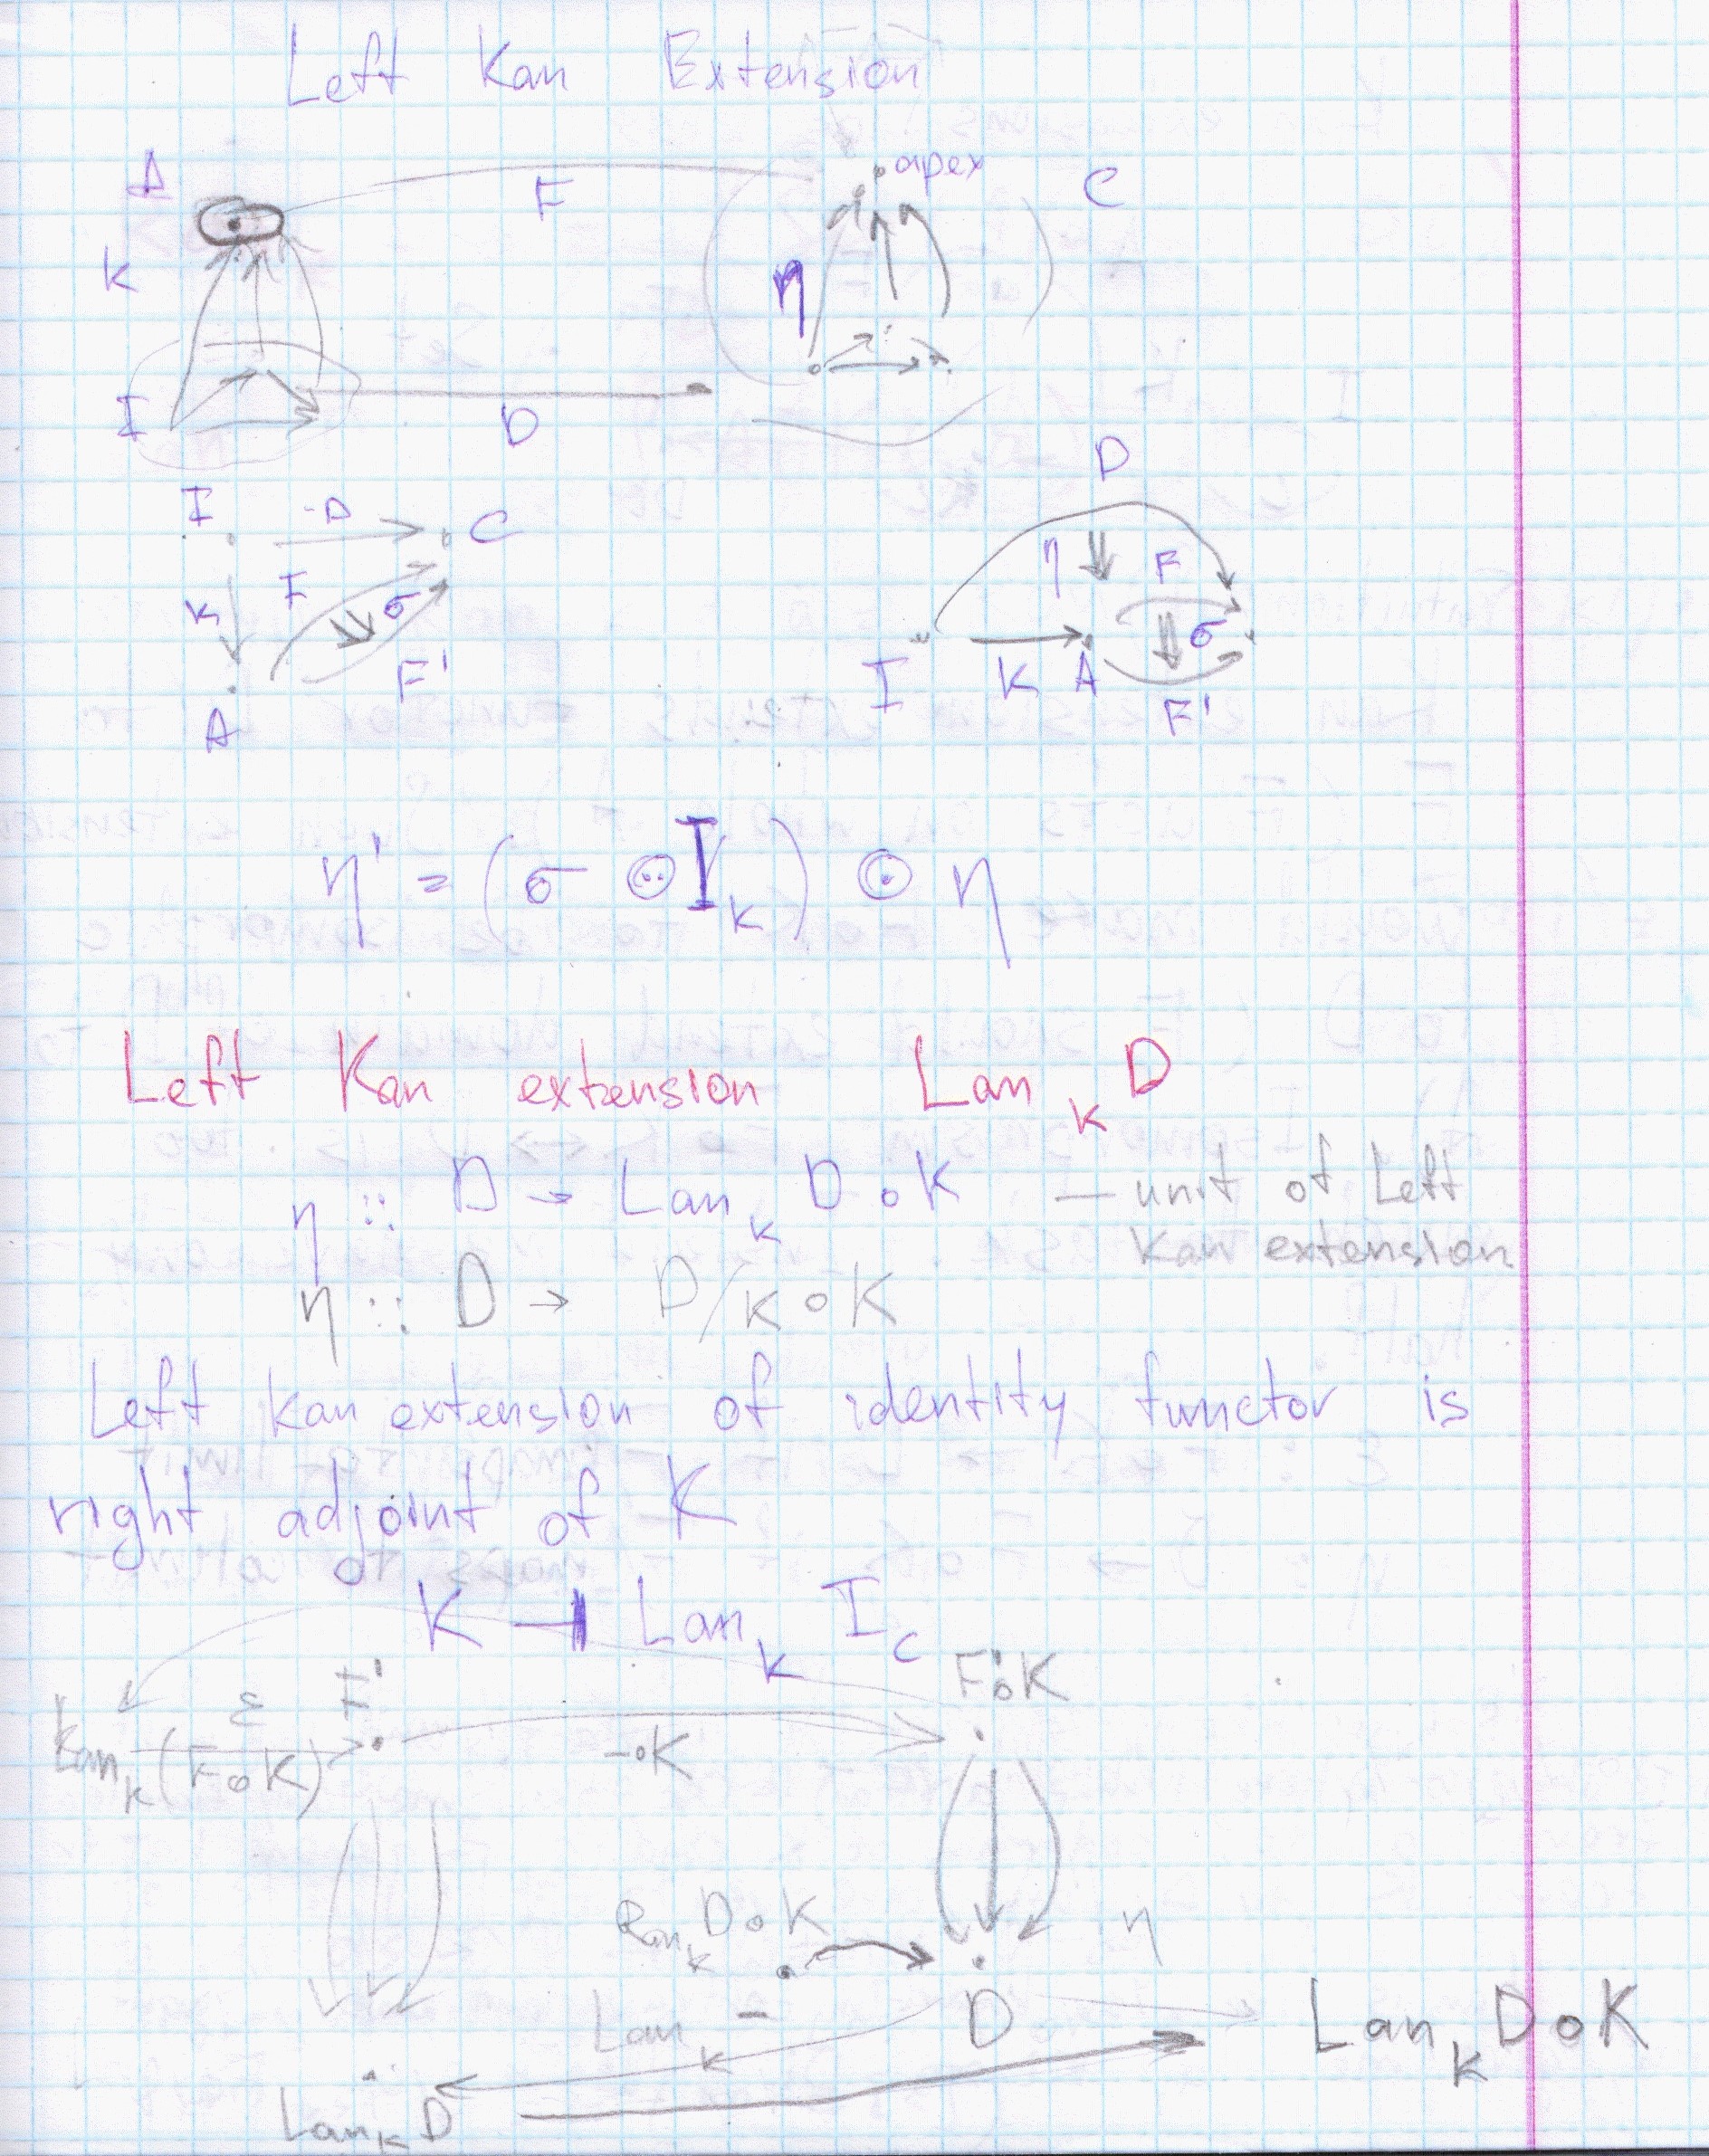 Left Kan Extension
A F apex C
K η
I D
I D C
K F σ
F'
A
D
η F
σ
I K A
F'
η' = (σ ⊙ I_K) ⊙ η
Left Kan extension Lan_K D
η :: D → Lan_K D ∘ K — unit of Left
Kan extension
η :: D → D/K ∘ K
Left Kan extension of identity functor is
right adjoint of K
K ⊣ Lan_K I_C
F'∘K
ε F'
Lan_K (F∘K) -∘K
Ran_K D∘K η
Lan_K - D Lan_K D∘K
Lan_K D